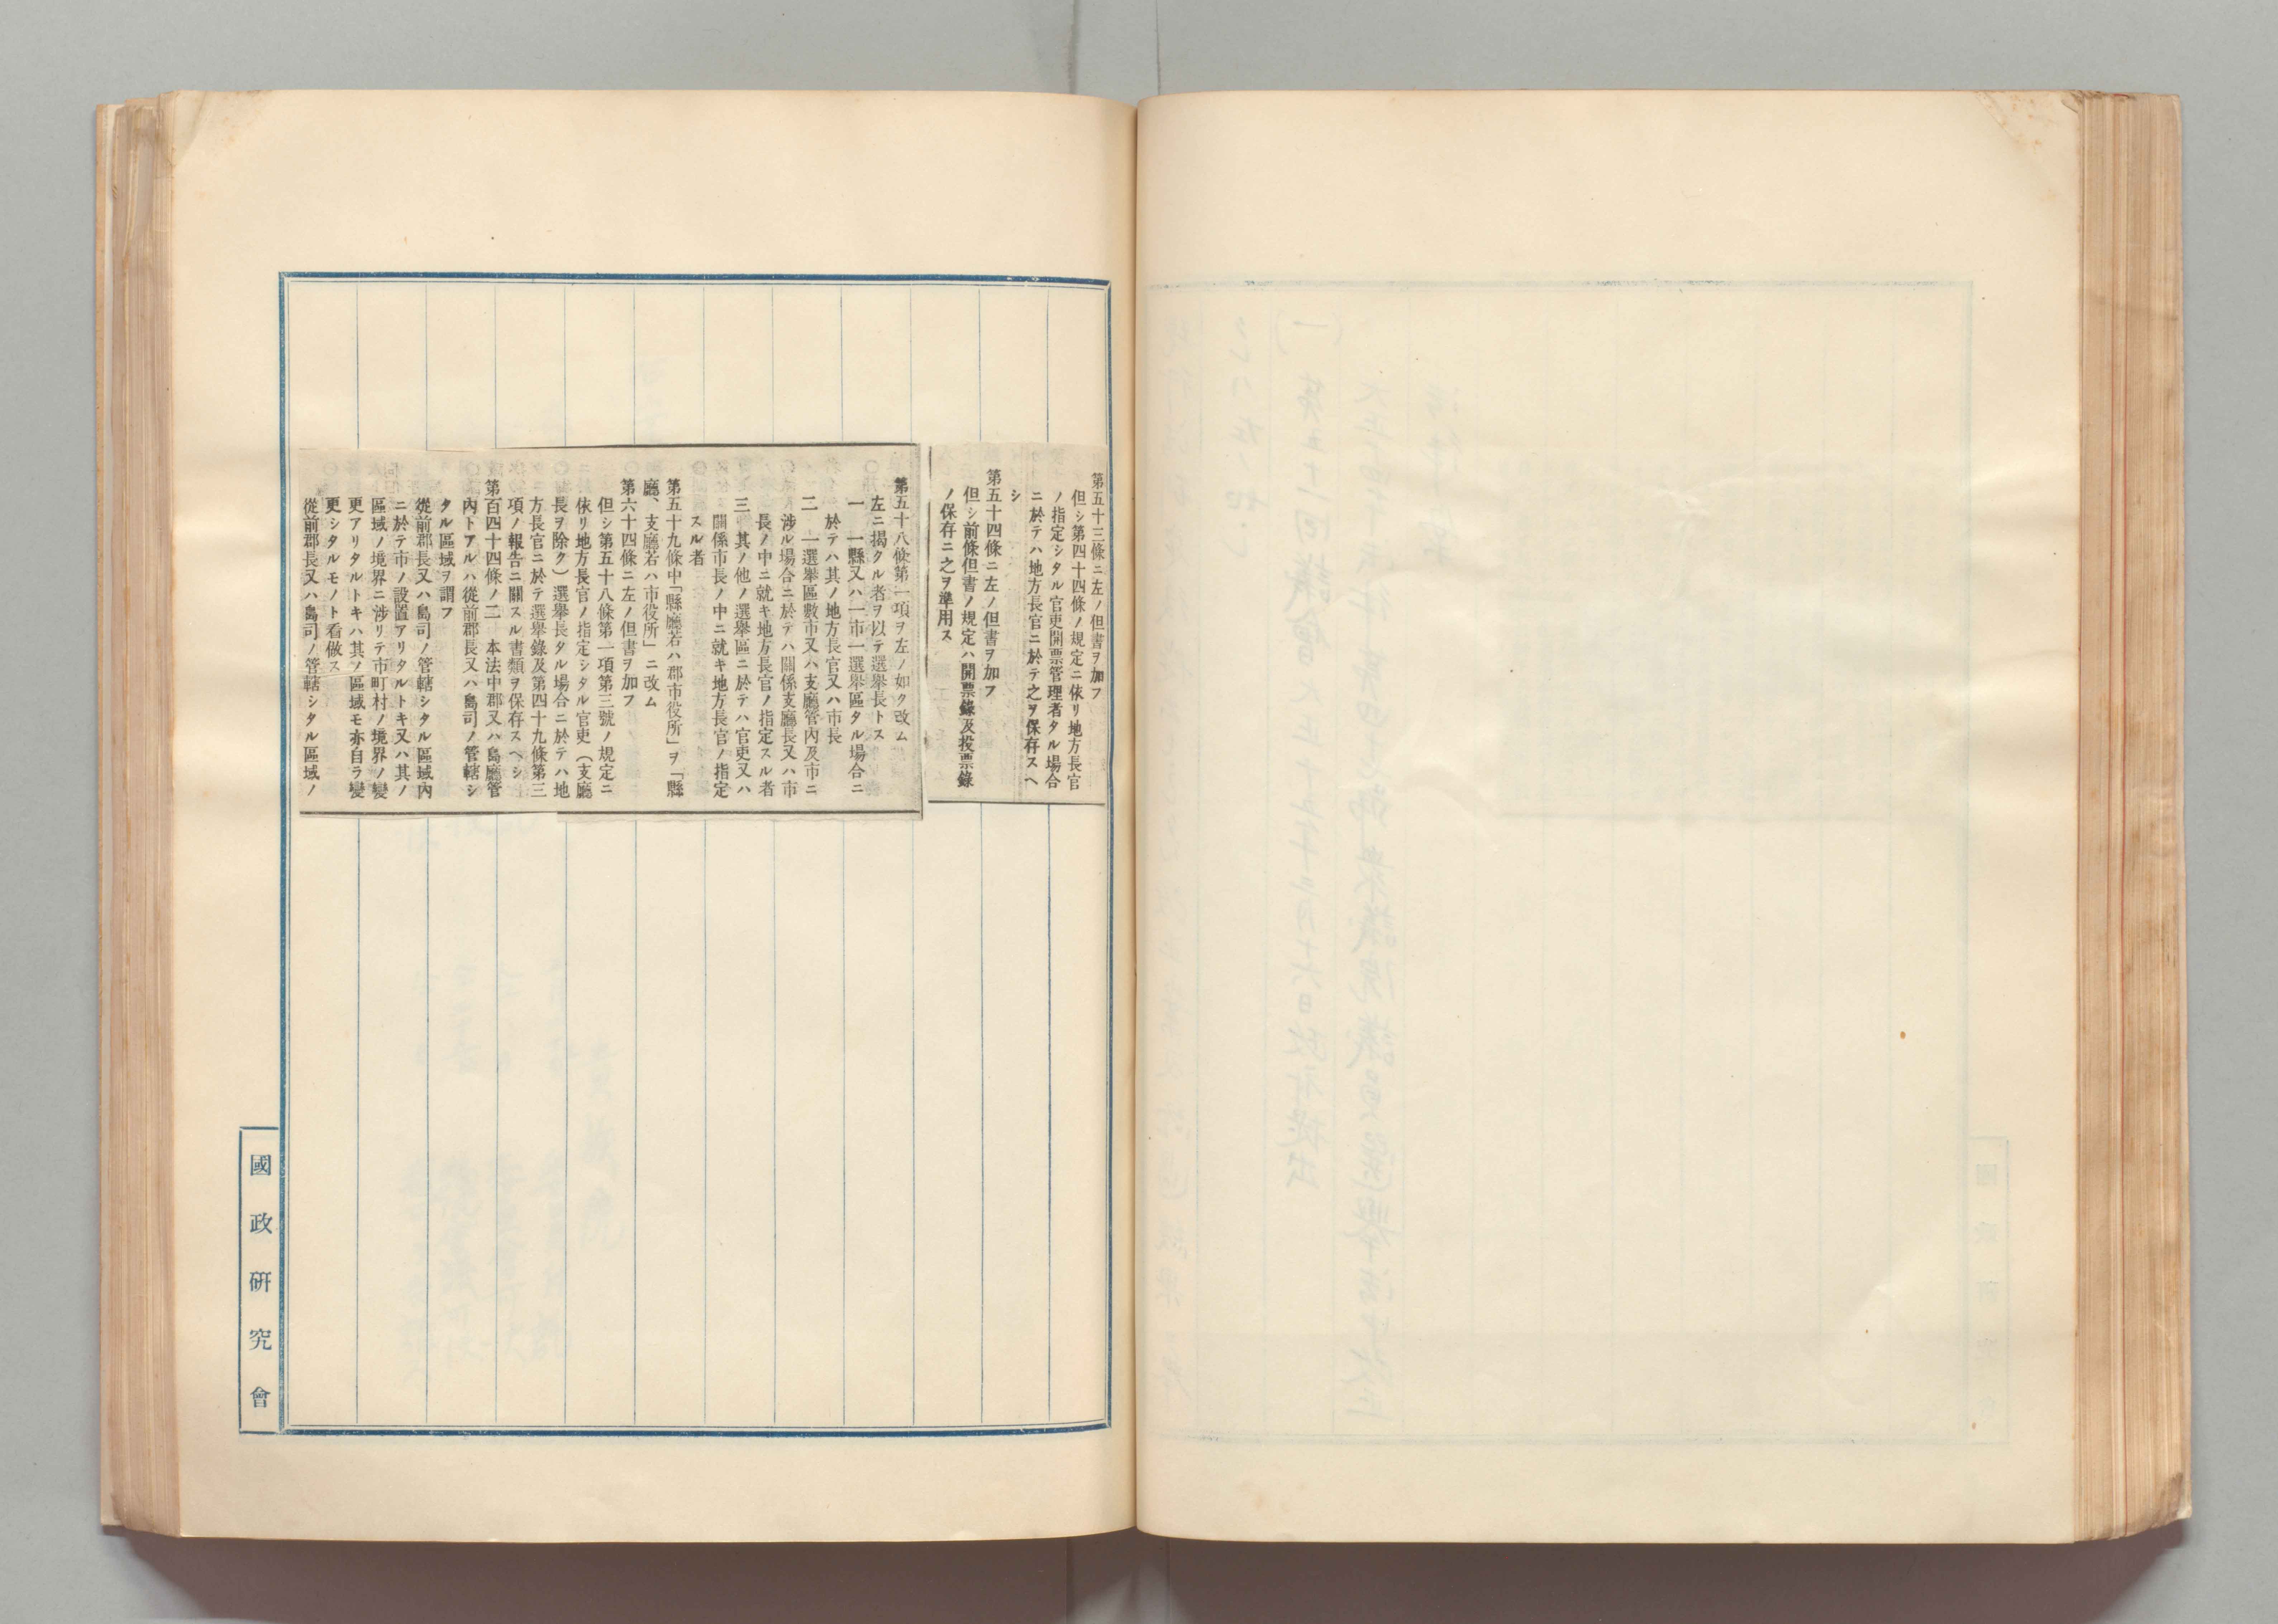 第五十三條ニ左ノ但書ヲ加フ
但シ第四十四條ノ規定ニ依リ地方長官
ノ指定シタル官吏開票管理者タル場合
ニ於テハ地方長官ニ於テ之ヲ保存スヘ
シ
第五十四條ニ左ノ但書ヲ加フ
但シ前條但書ノ規定ハ開票錄及投票錄
ノ保存ニ之ヲ準用ス
第五十八條第一項ヲ左ノ如ク改ム
左ニ揭クル者ヲ以テ選舉長トス
一 一縣又ハ一市一選舉區タル場合ニ
於テハ其ノ地方長官又ハ市長
二 一選舉區數市又ハ支廳管內及市ニ
涉ル場合ニ於テハ關係支廳長又ハ市
長ノ中ニ就キ地方長官ノ指定スル者
三 其ノ他ノ選舉區ニ於テハ官吏又ハ
關係市長ノ中ニ就キ地方長官ノ指定
スル者
第五十九條中「縣廳若ハ郡市役所」ヲ「縣
廳、支廳若ハ市役所」ニ改ム
第六十四條ニ左ノ但書ヲ加フ
但シ第五十八條第一項第三號ノ規定ニ
依リ地方長官ノ指定シタル官吏（支廳
長ヲ除ク）選舉長タル場合ニ於テハ地
方長官ニ於テ選舉錄及第四十九條第三
項ノ報告ニ關スル書類ヲ保存スヘシ
第百四十四條ノ二 本法中郡又ハ島廳管
內トアルハ從前郡長又ハ島司ノ管轄シ
タル區域ヲ謂フ
從前郡長又ハ島司ノ管轄シタル區域內
ニ於テ市ノ設置アリタルトキ又ハ其ノ
區域ノ境界ニ涉リテ市町村ノ境界ノ變
更アリタルトキハ其ノ區域モ亦自ラ變
更シタルモノト看做ス
從前郡長又ハ島司ノ管轄シタル區域ノ
國政研究會